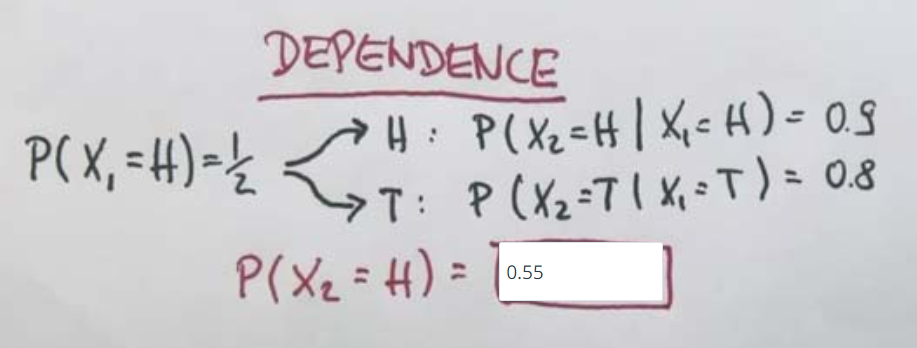 DEPENDENCE
P(X₁=H)=½ → H : P(X₂=H | X₁=H) = 0.9
→ T : P(X₂=T | X₁=T) = 0.8
P(X₂=H) = 0.55